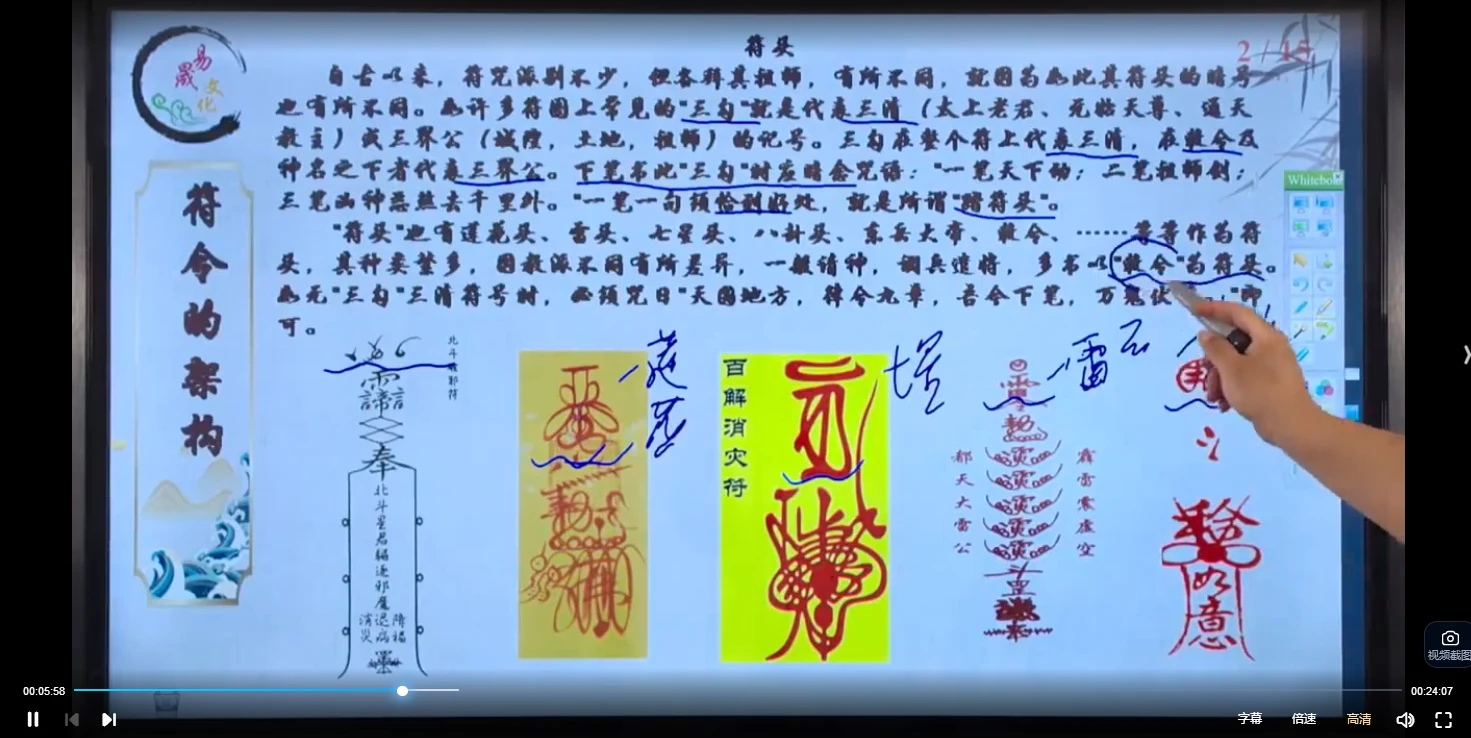 符头
2 / 15
易
晟
文
化
自古以来，符咒派别不少，但各拜其祖师，有所不同，就因为如此其符头的暗号
也有所不同。如许多符图上常见的"三勾"就是代表三清（太上老君、元始天尊、通天
教主）或三界公（城隍，土地，祖师）的记号。三勾在整个符上代表三清，在敕令及
神名之下者代表三界公。下笔书此"三勾"时应暗念咒语："一笔天下动；二笔祖师剑；
三笔凶神恶煞去千里外。"一笔一句须恰到好处，就是所谓"踏符头"。
"符头"也有莲花头、雷头、七星头、八卦头、东岳大帝、敕令、……等等作为符
头，其种类繁多，因教派不同有所差异，一般请神，调兵遣将，多书以"敕令"为符头。
如无"三勾"三清符号时，必须咒曰"天圆地方，律令九章，吾令下笔，万鬼伏
即
可。
符令的架构
Whiteboa
北斗
邪符
奉
北斗星君驱逐邪魔
消灾
退病
降福
百解消灾符
雷
都天大雷公
霹雷震虚空
如意
00:05:58
00:24:07
字幕
倍速
高清
视频截图